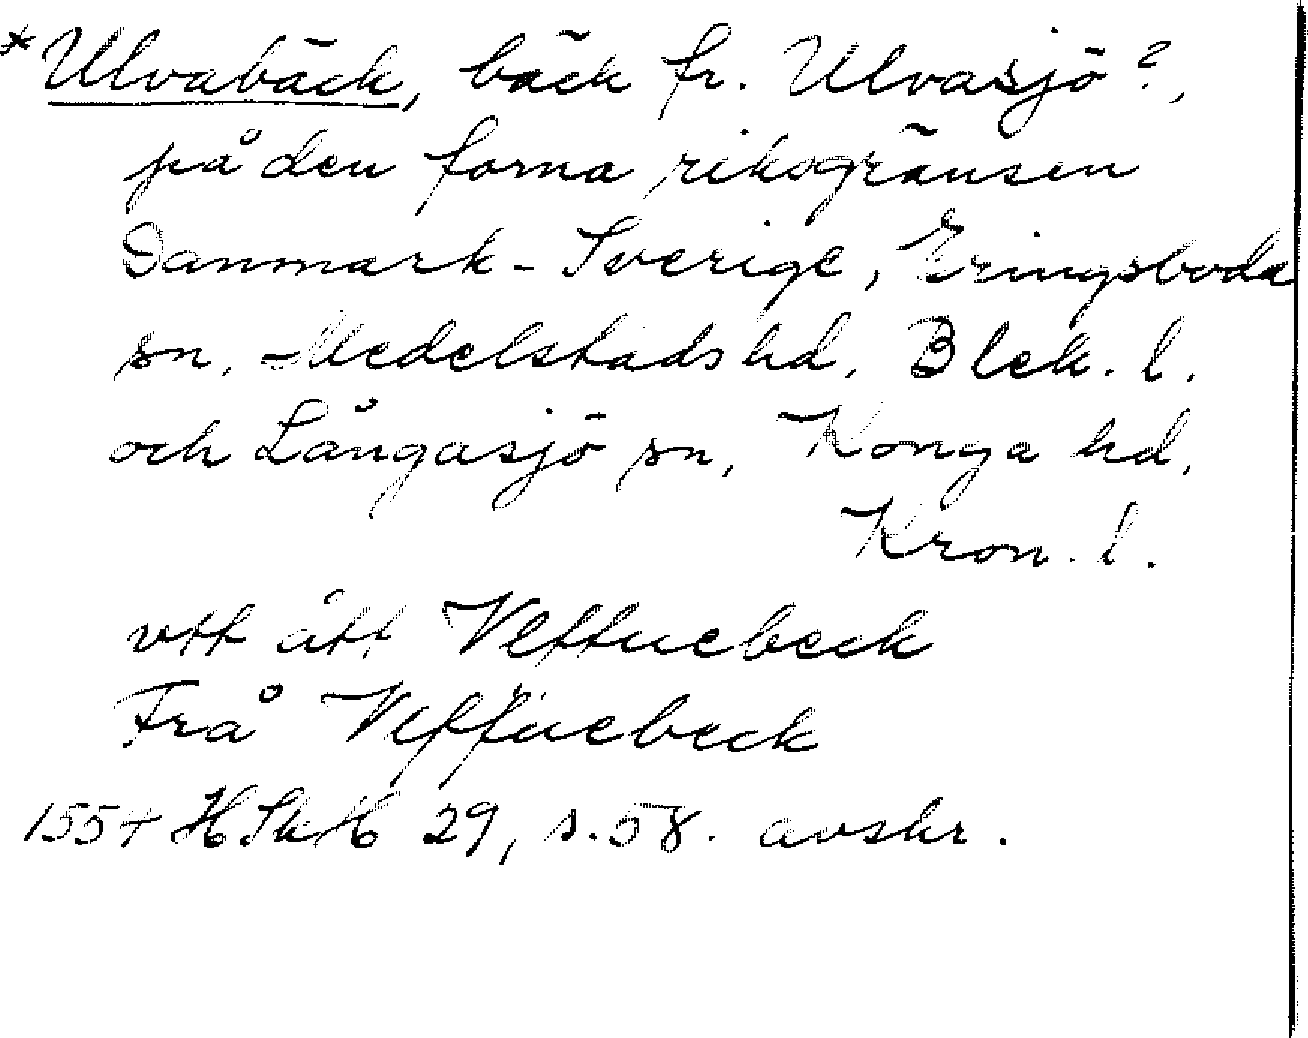 *Ulvabäck, bäck fr. Ulvasjö?,
på den forna riksgränsen
Danmark-Sverige, Eringsboda
sn, Medelstads hd, Blek. l.
och Långasjö sn, Konga hd,
Kron. l.
vtt átt Vlffuebeck
Frå Vlffuebeck
1554 HSkH 29, s. 58. avskr.